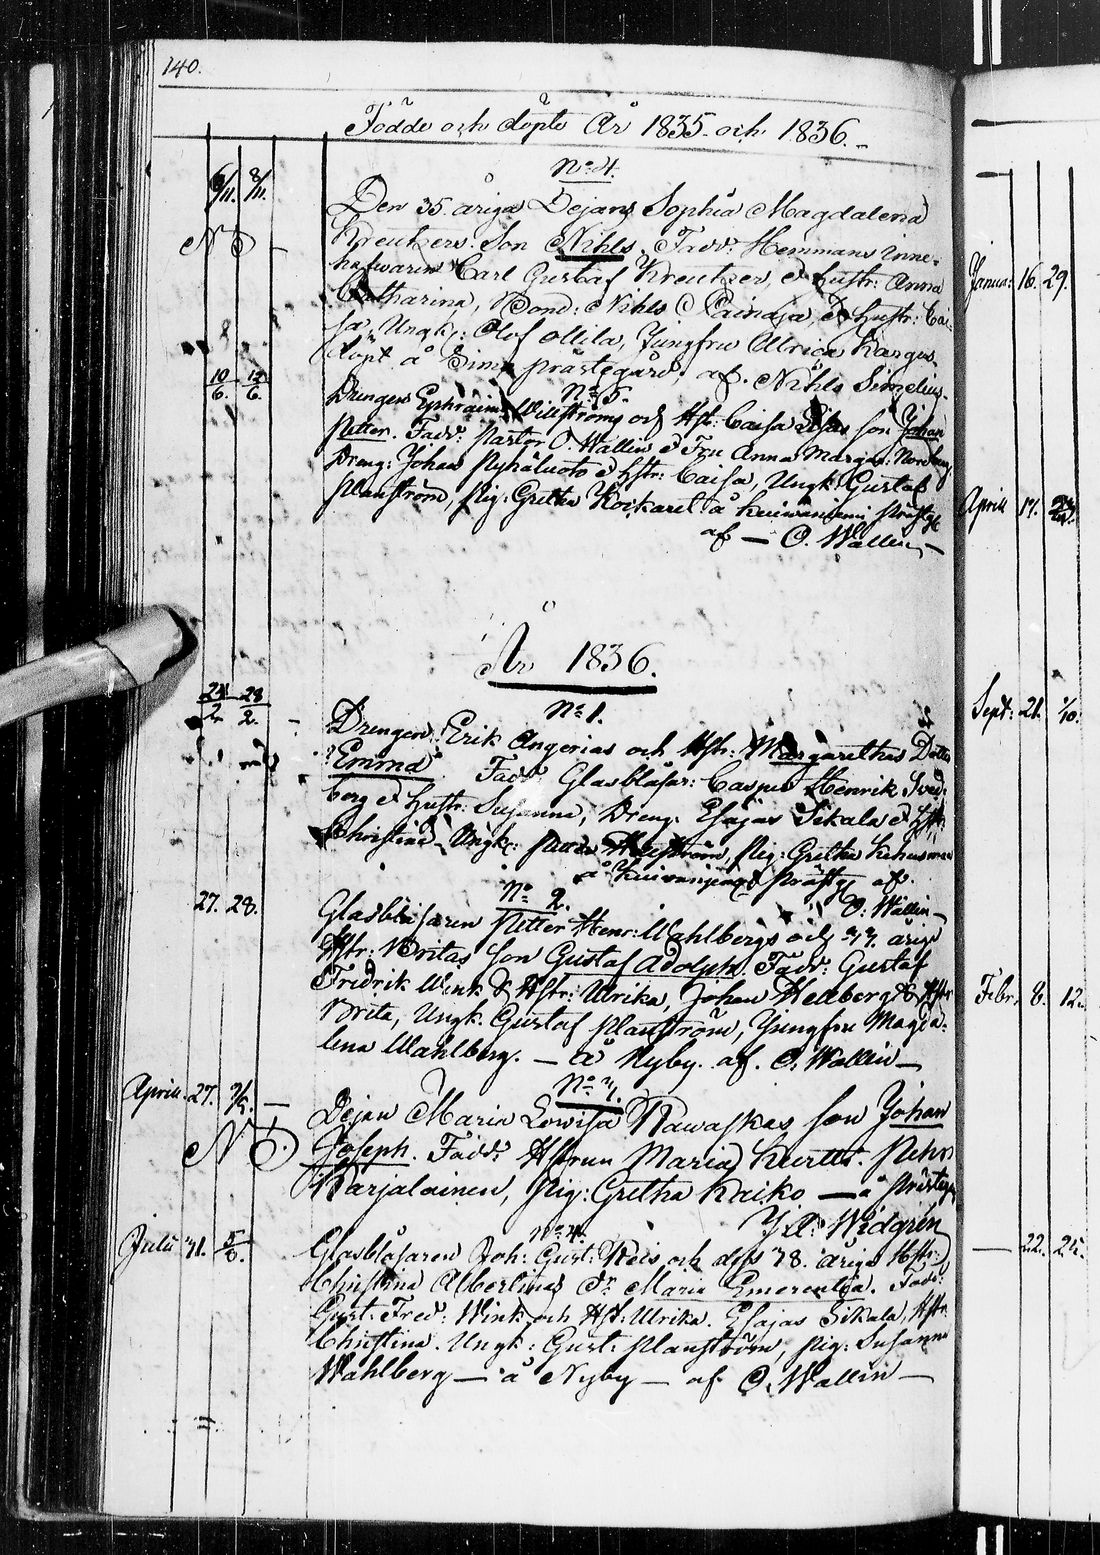 140.
Födde och döpte År 1835. och 1836.
No 4.
6/11. 8/11.
Den 35. åriga Dejans Sophia Magdalena
NB
Kreutzers Son Nihls. Fadd: Hemmans inne-
hafwaren Carl Gustaf Kreutzer, & hustr: Anna
Catharina, Bond: Nihls Painaja, & hustr: Cai-
sa, Ungk: Olof Ollila, Jungfru Ulrica Kargus
döpt å Simo prästegård, af. Nihls Simelius.
No 5.
10/6. 12/6.
Drengen Ephraim Willströms och Hst: Caisa son Johan
Petter. Fadd: Pastor O. Wallin & Fru Anna Margar: Nordberg
Dreng: Johan Pyhäluoto & hstr: Caisa, Ungk: Gustaf
Planström, Pig: Gretha Kockare å Kuiwaniemi Prästg
af — O. Wallin —
År 1836.
24/2 28/2.
No 1.
Drengen Erik Angerias och Hstr: Margarethas Dotter
Emma. Fadd: Glasblåsar: Casper Henrik Sved-
berg & Hustr: Susanna, Dreng: Esajas Sikala & Hstr:
Christina, Ungk: Pig: Gretha
å Kuivaniemi Prästg af.
O. Wallin —
No 2.
27. 28.
Glasblåsaren Petter Henr: Wahlbergs och 27. åriga
Hstr: Britas Son Gustaf Adolph. Fadd: Gustaf
Fridrik Wink & Hstr: Ulrika, Johan Hellberg & Hstr
Brita, Ungk. Gustaf Planström, Jungfru Magda-
lena Wahlberg. — å Nyby. af. O. Wallin —
No 3.
Aprill. 27.
Dejan Maria Lowisa Rawaskas son Johan
NB
Joseph. Fadd: Hstrun Maria Kurtti. Pehr
Karjalainen, Pig: Gretha Kaiko — å Prästg
Widgrén
No 4.
Julii 31. 5/8.
Glasblåsaren Joh: Gust: Reis och dess 28. åriga Hstr:
Christina Albertinas Dr Maria Emerentia. Fadd:
Gust: Fred: Wink och Hst: Ulrika. Esajas Sikala, Hstr:
Christina. Ungk: Gust: Planström, Pig: Susanna
Wahlberg — å Nyby — af O. Wallin —
Janua: 16. 29.
Aprill 17.
Sept: 21. 1/10.
Febr. 8. 12.
— 22. 25.